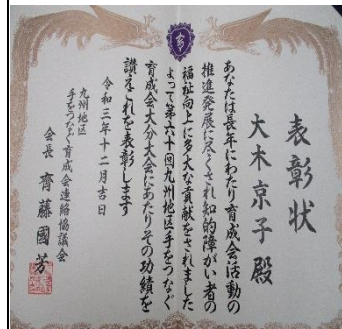 表彰状
大木京子殿
あなたは長年にわたり育成会活動の
推進発展に尽くされ知的障がい者の
福祉向上に多大な貢献をされました
よって第六十回九州地区手をつなぐ
育成会大分大会にあたりその功績を
讃えこれを表彰します
令和三年十二月吉日
九州地区
手をつなぐ育成会連絡協議会
会長 齊藤國芳